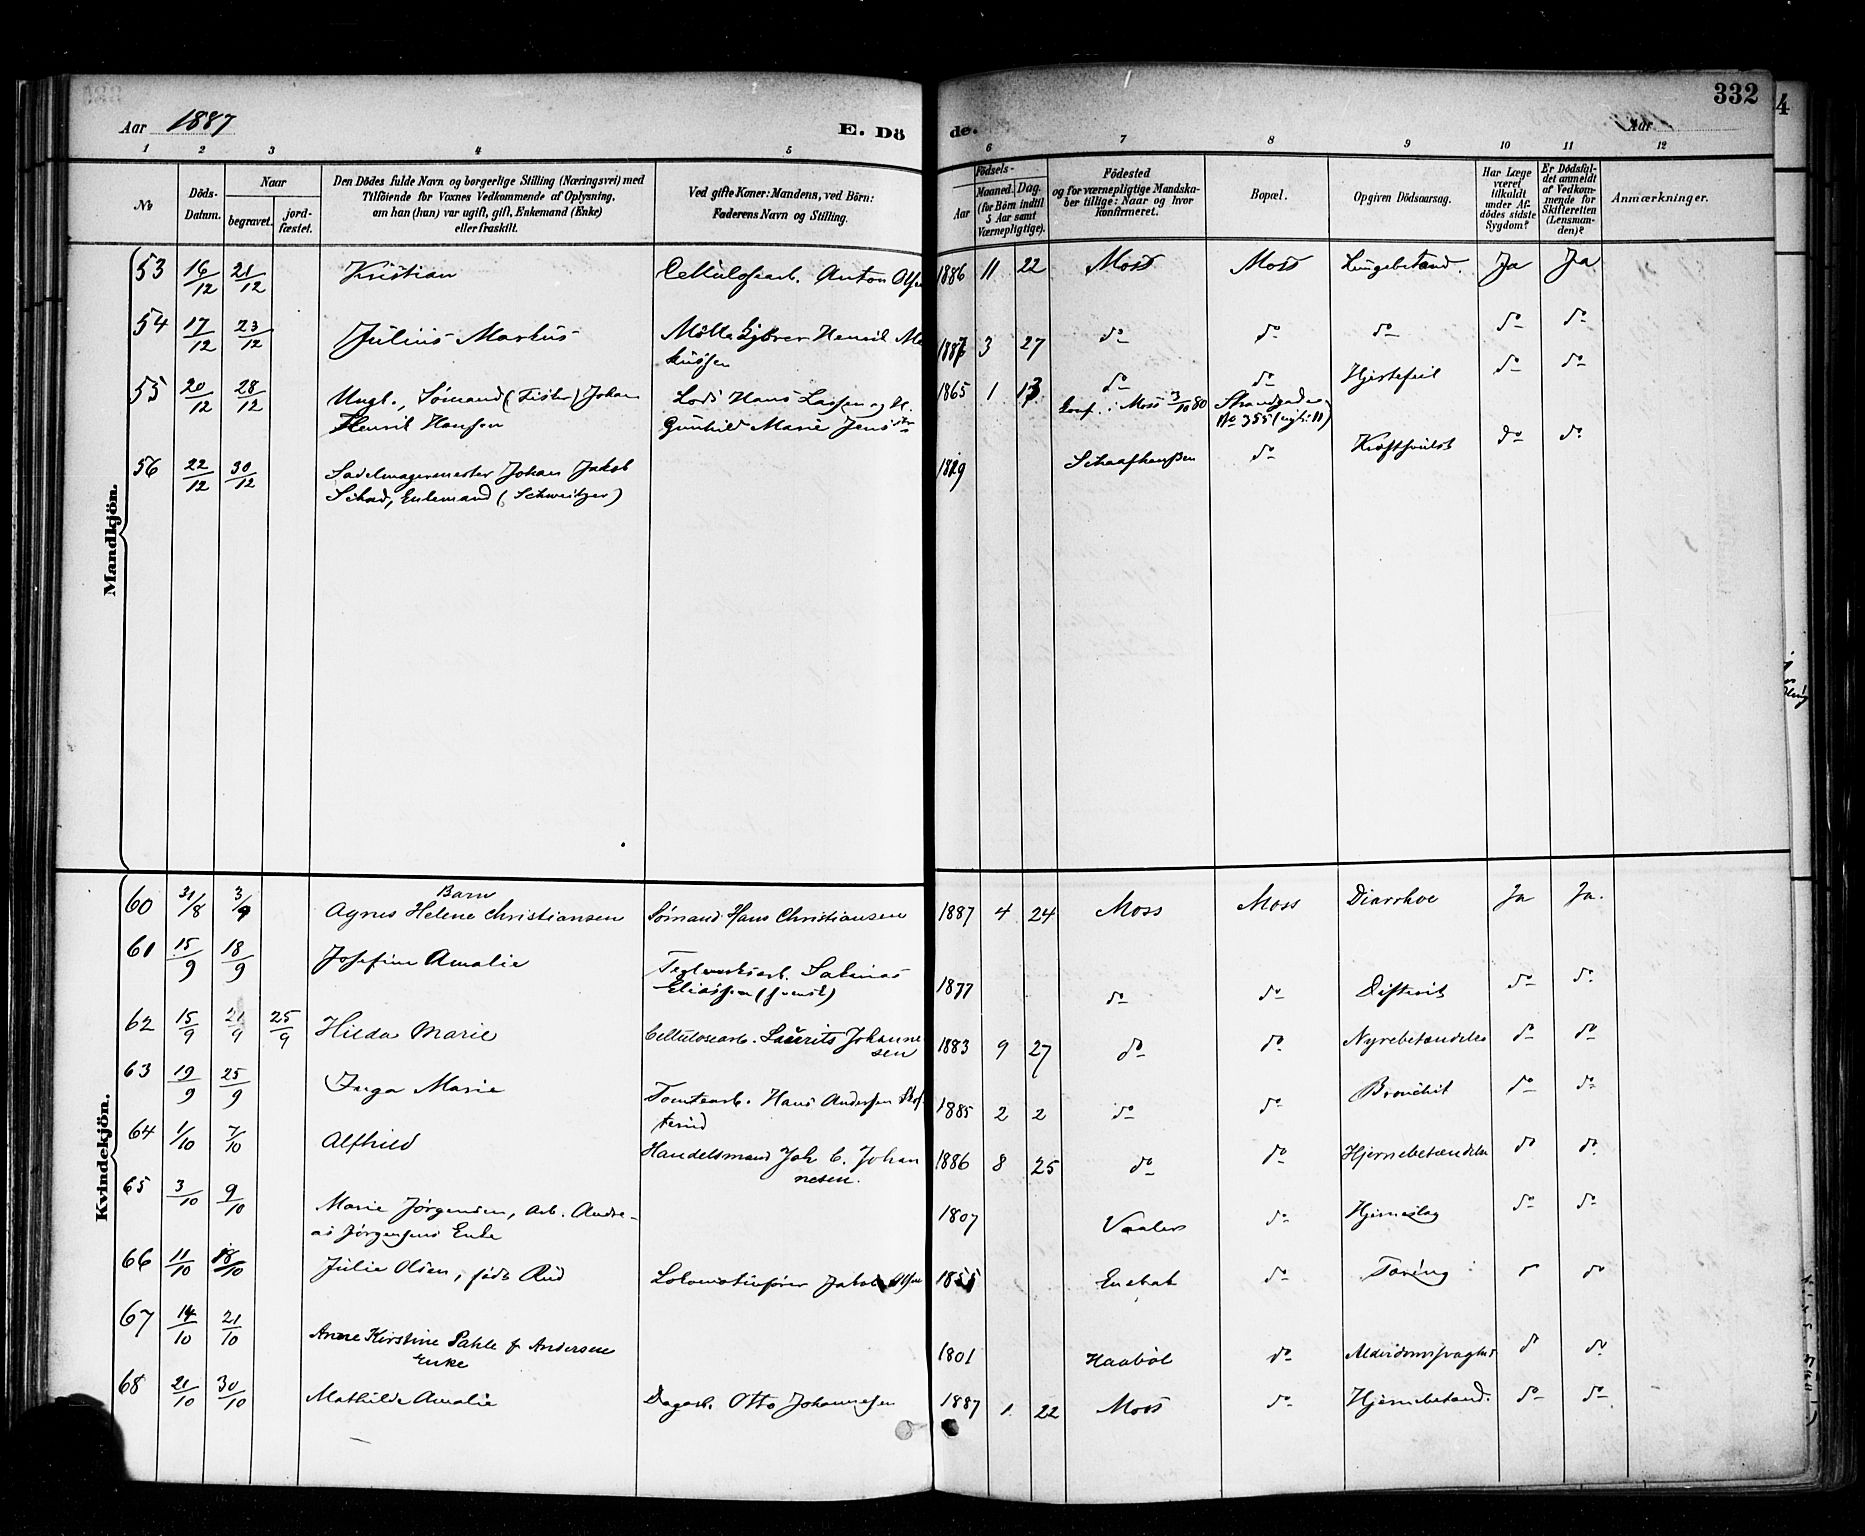 332
Aar 1887
E. Dö
de.
Aar
1 2 3 4 5 6 7 8 9 10 11 12
No
Döds-
Datum.
Naar
begravet.
jord-
fæstet.
Den Dödes fulde Navn og borgerlige Stilling (Næringsvei) med
Tilföiende for Voxnes Vedkommende af Oplysning,
om han (hun) var ugift, gift, Enkemand (Enke)
eller fraskilt.
Ved gifte Koner: Mandens, ved Börn:
Faderens Navn og Stilling.
Födsels-
Aar
Maaned. Dag.
(for Börn indtil
5 Aar samt
Værnepligtige).
Födested
og for værnepligtige Mandska-
ber tillige: Naar og hvor
konfirmeret.
Bopæl.
Opgiven Dödsaarsag.
Har Læge
været
tilkaldt
under Af-
dödes sidste
Sygdom?
Er Dödsfal-
det anmeldt
af Vedkom-
mende for
Skifteretten
(Lensman-
den)?
Anmærkninger.
Mandkjön.
53 16/12 21/12 Kristian Cellulosearb. Anton Olsen 1886 11 22 Moss Moss Lungebetænd. Ja Ja
54 17/12 23/12 Julius Markus Mölle Henrik Ma
kussen 1887 3 27 do do do do do
55 20/12 28/12 Ungk., Sømand (Fisker) Johan Lods Hans Larsen og H. 1865 1 13 do do Hjertefeil do do
Henrik Hansen Gunhild Marie Jens konf. i Moss 3/10 80 Strandgaden
No 355
56 22/12 30/12 Sadelmagermester Johan Jakob 1819 Schaafhaußen do Kræftsvulst do do
Schad, Enkemand (Schweitzer)
Kvindekjön.
60 31/8 3/9 Barn
Agnes Helene Christiansen Sømand Hans Christiansen 1887 4 24 Moss Moss Diarrhoe Ja Ja.
61 15/9 18/9 Josefine Amalie Teglverksarb. Salinas
Eliassen (svensk) 1877 do do Difterit do do
62 15/9 21/9 25/9 Hilda Marie Cellulosearb. Laurits Johanne
sen 1883 9 27 do do Nyrebetændelse do do
63 19/9 25/9 Inga Marie Tomtearb. Hans Andersen
1885 2 2 do do Bronchit do do
64 1/10 7/10 Alfhild Handelsmand Joh C. Johan
nesen. 1886 8 25 do do Hjernebetændelse do do
65 3/10 9/10 Marie Jørgensen, Arb. Andre-
as Jørgensens Enke 1807 Vaaler do Hjerneslag do do
66 11/10 18/10 Julie Olsen, født Rud Lokomotivfører Jakob Olsen 1855 Enebak do Tæring do do
67 14/10 21/10 Anne Kirstine Pahle f Andersen
Enke 1801 Haabøl do Alderdomssvaghed do do
68 21/10 30/10 Mathilde Amalie Dagarb. Otto Johannesen 1887 1 22 Moss do Hjernebetænd. do do